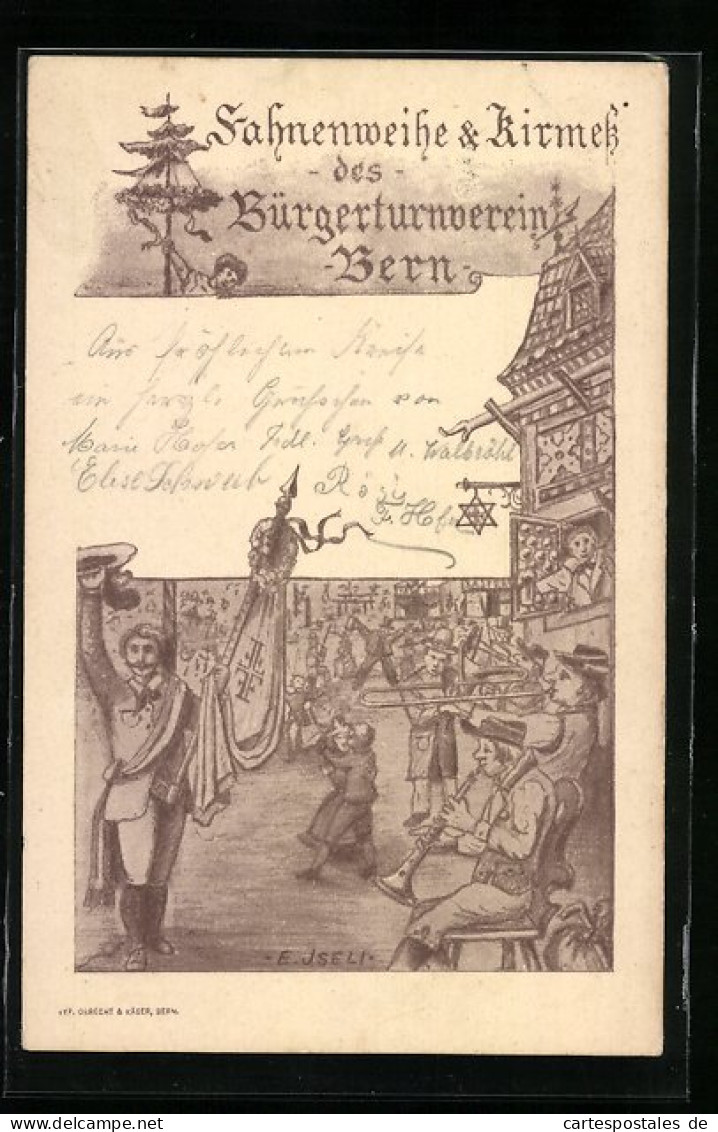 Fahnenweihe & Kirmeß
- des -
Bürgerturnverein
- Bern -
Aus fröhlichem Kreise
ein herzl. Grüsschen von
Marie Hofer Frdl. Gruß A. Walbröhl
Elise Schwab Rösy
F. Hofer
- E. JSELI -
TYP. OLBRECHT & KÄSER, BERN.
cartespostales de